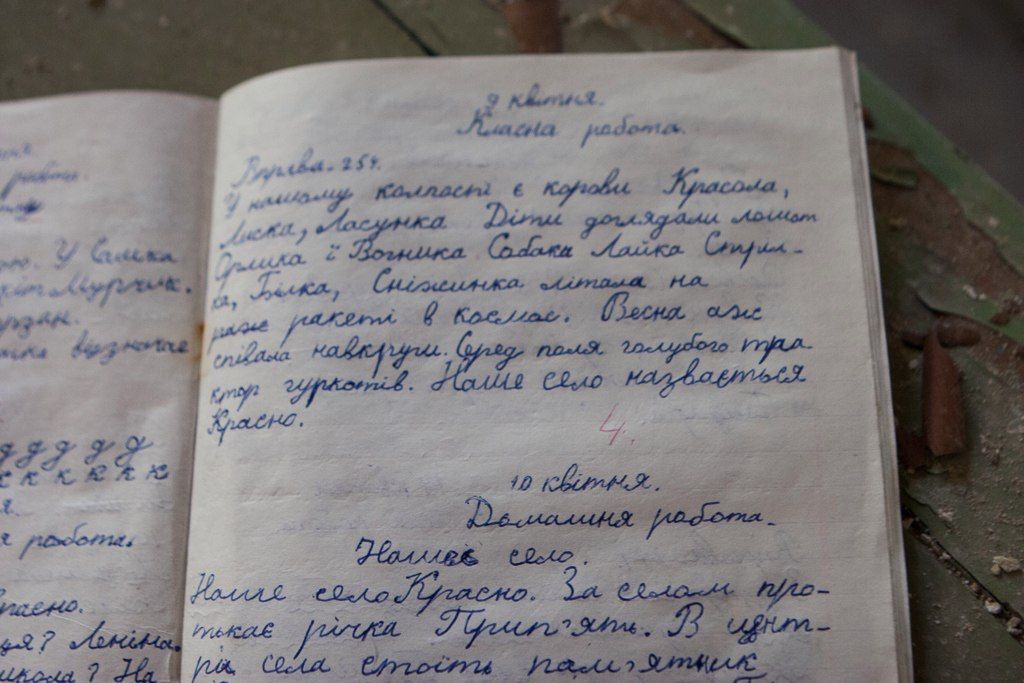 Саміка
Мурчик.
визначає
д д д д д
к к к к к к
я робота.
Красно.
Леніна.
школа? На
9 квітня.
Класна робота.
Вправа. 254.
У нашому колпасті є корови Красола,
Лиска, Ласунка Діти доглядали лошат
Орлика ї Вогника Собака Лайка Стріл-
ка, Білка, Сніжинка літала на
ракеті в космос. Весна аж
співала навкруги. Серед поля голубого тра
ктор гуркотів. Наше село назвається
Красно.
4.
10 квітня.
Домашня робота.
Наше село.
Наше село Красно. За селом про-
тікає річка Прип'ять. В центр-
рі села стоїть пам'ятник